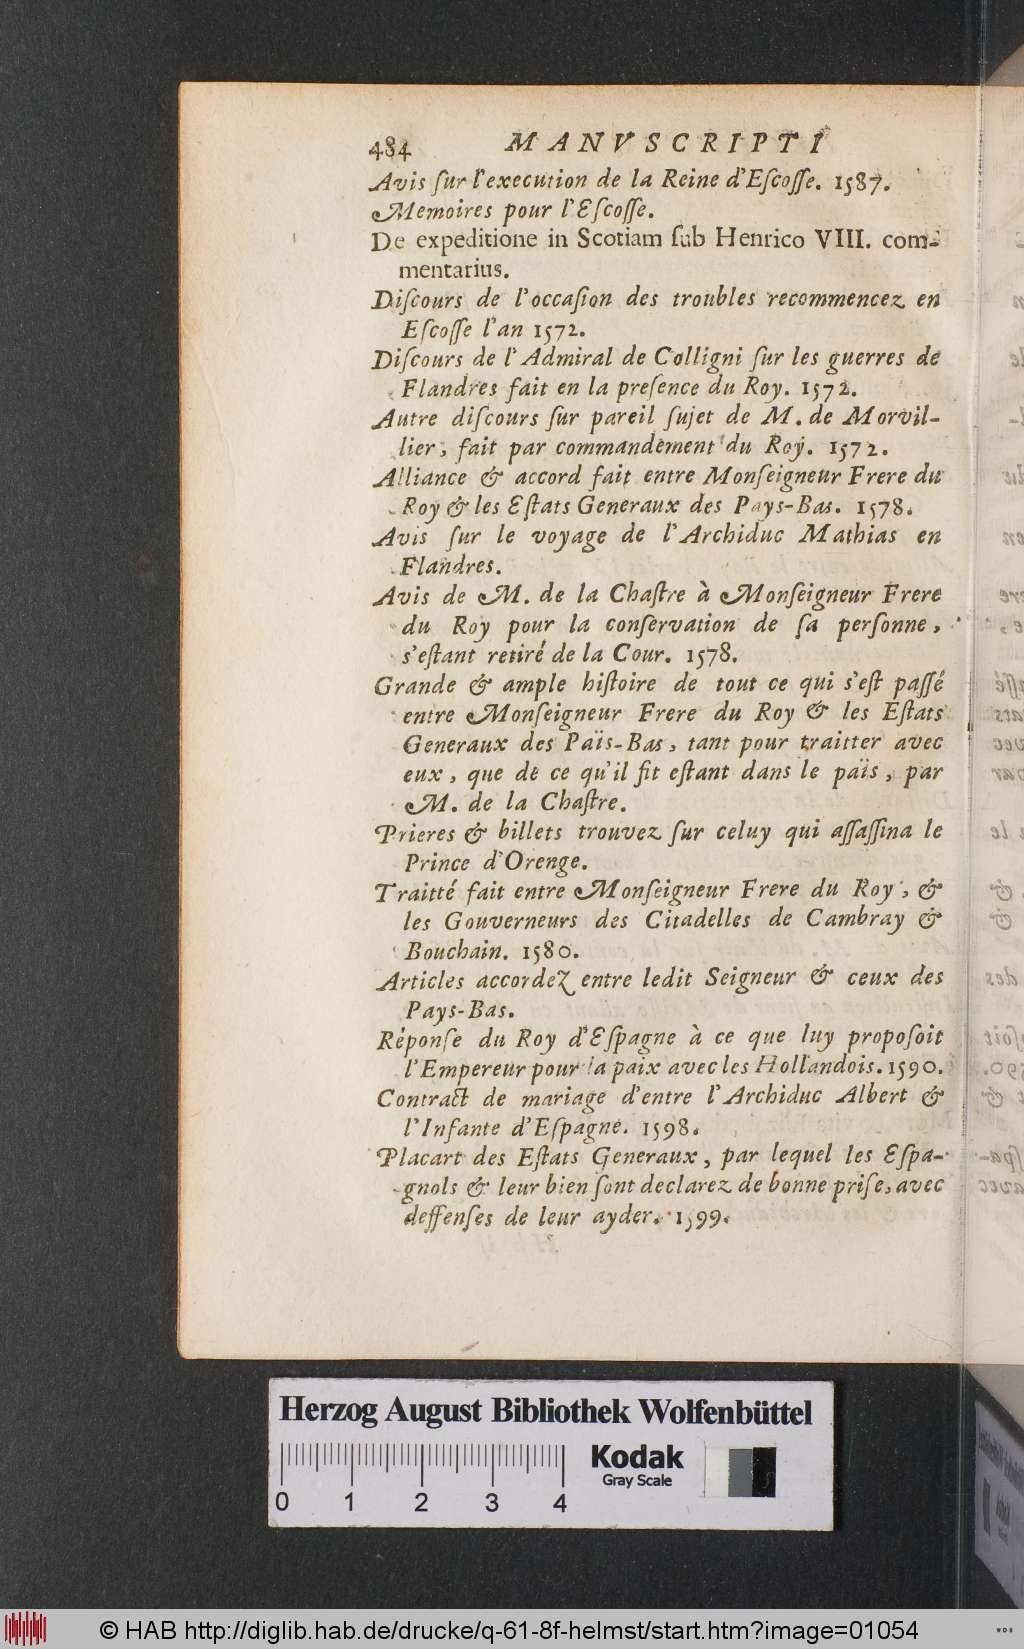 484 MANVSCRIPTI
Avis ſur l'execution de la Reine d'Eſcoſſe. 1587.
Memoires pour l'Eſcoſſe.
De expeditione in Scotiam ſub Henrico VIII. com-
mentarius.
Diſcours de l'occaſion des troubles recommencez en
Eſcoſſe l'an 1572.
Diſcours de l'Admiral de Colligni ſur les guerres de
Flandres fait en la preſence du Roy. 1572.
Autre diſcours ſur pareil ſujet de M. de Morvil-
lier, fait par commandement du Roy. 1572.
Alliance & accord fait entre Monſeigneur Frere du
Roy & les Eſtats Generaux des Pays-Bas. 1578.
Avis ſur le voyage de l'Archiduc Mathias en
Flandres.
Avis de M. de la Chaſtre à Monſeigneur Frere
du Roy pour la conſervation de ſa perſonne,
s'eſtant retiré de la Cour. 1578.
Grande & ample hiſtoire de tout ce qui s'eſt paſſé
entre Monſeigneur Frere du Roy & les Eſtats
Generaux des Païs-Bas, tant pour traitter avec
eux, que de ce qu'il fit eſtant dans le païs, par
M. de la Chaſtre.
Prieres & billets trouvez ſur celuy qui aſſaſſina le
Prince d'Orenge.
Traitté fait entre Monſeigneur Frere du Roy, &
les Gouverneurs des Citadelles de Cambray &
Bouchain. 1580.
Articles accordez entre ledit Seigneur & ceux des
Pays-Bas.
Réponſe du Roy d'Eſpagne à ce que luy propoſoit
l'Empereur pour la paix avec les Hollandois. 1590.
Contract de mariage d'entre l'Archiduc Albert &
l'Infante d'Eſpagne. 1598.
Placart des Eſtats Generaux, par lequel les Eſpa-
gnols & leur bien ſont declarez de bonne priſe, avec
deffenſes de leur ayder. 1599.
Herzog August Bibliothek Wolfenbüttel
Kodak
Gray Scale
0 1 2 3 4
© HAB http://diglib.hab.de/drucke/q-61-8f-helmst/start.htm?image=01054